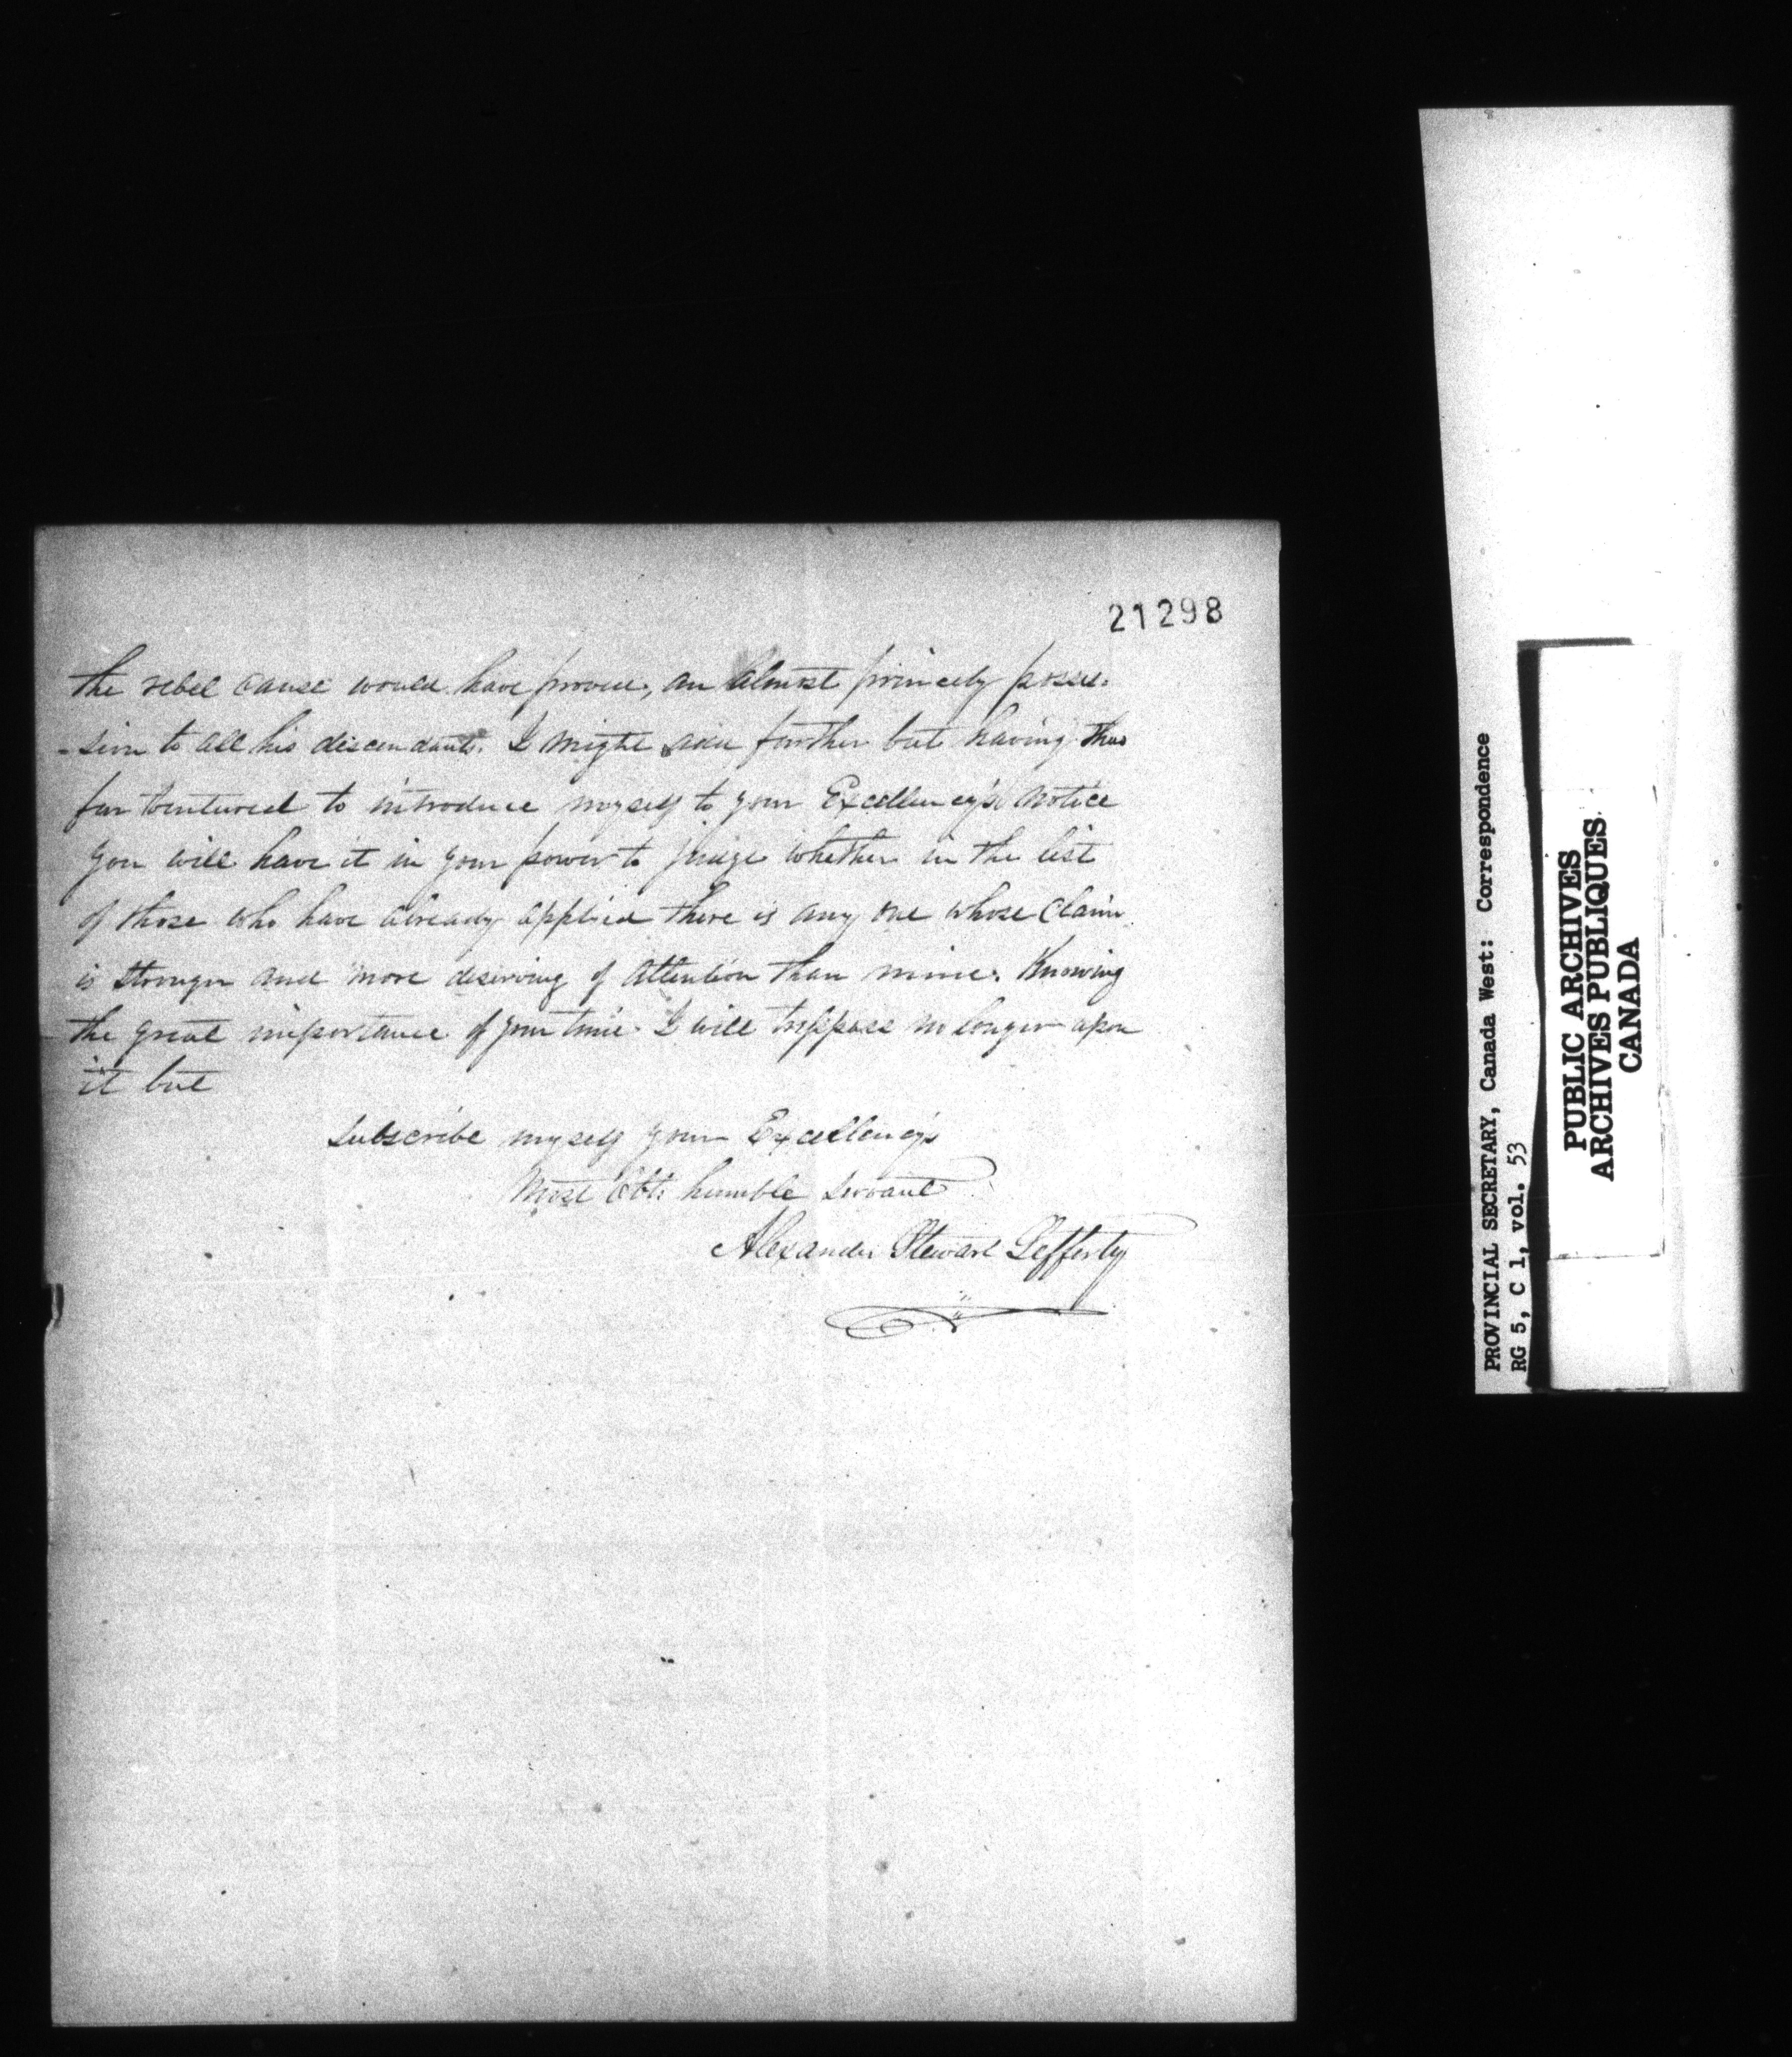 21298
the rebel cause would have proved, an almost princely posses-
-sion to all his descendants. I might add further but having thus
far ventured to introduce myself to your Excellency's notice
you will have it in your power to judge whether in the list
of those who have already applied there is any one whose claim
is stronger and more deserving of attention than mine. Knowing
the great importance of your time I will trespass no longer upon
it but
Subscribe myself your Excellency's
Most Obt. humble servant
Alexander Stewart Lefferty
PROVINCIAL SECRETARY, Canada West: Correspondence
RG 5, C 1, vol. 53
PUBLIC ARCHIVES
ARCHIVES PUBLIQUES
CANADA